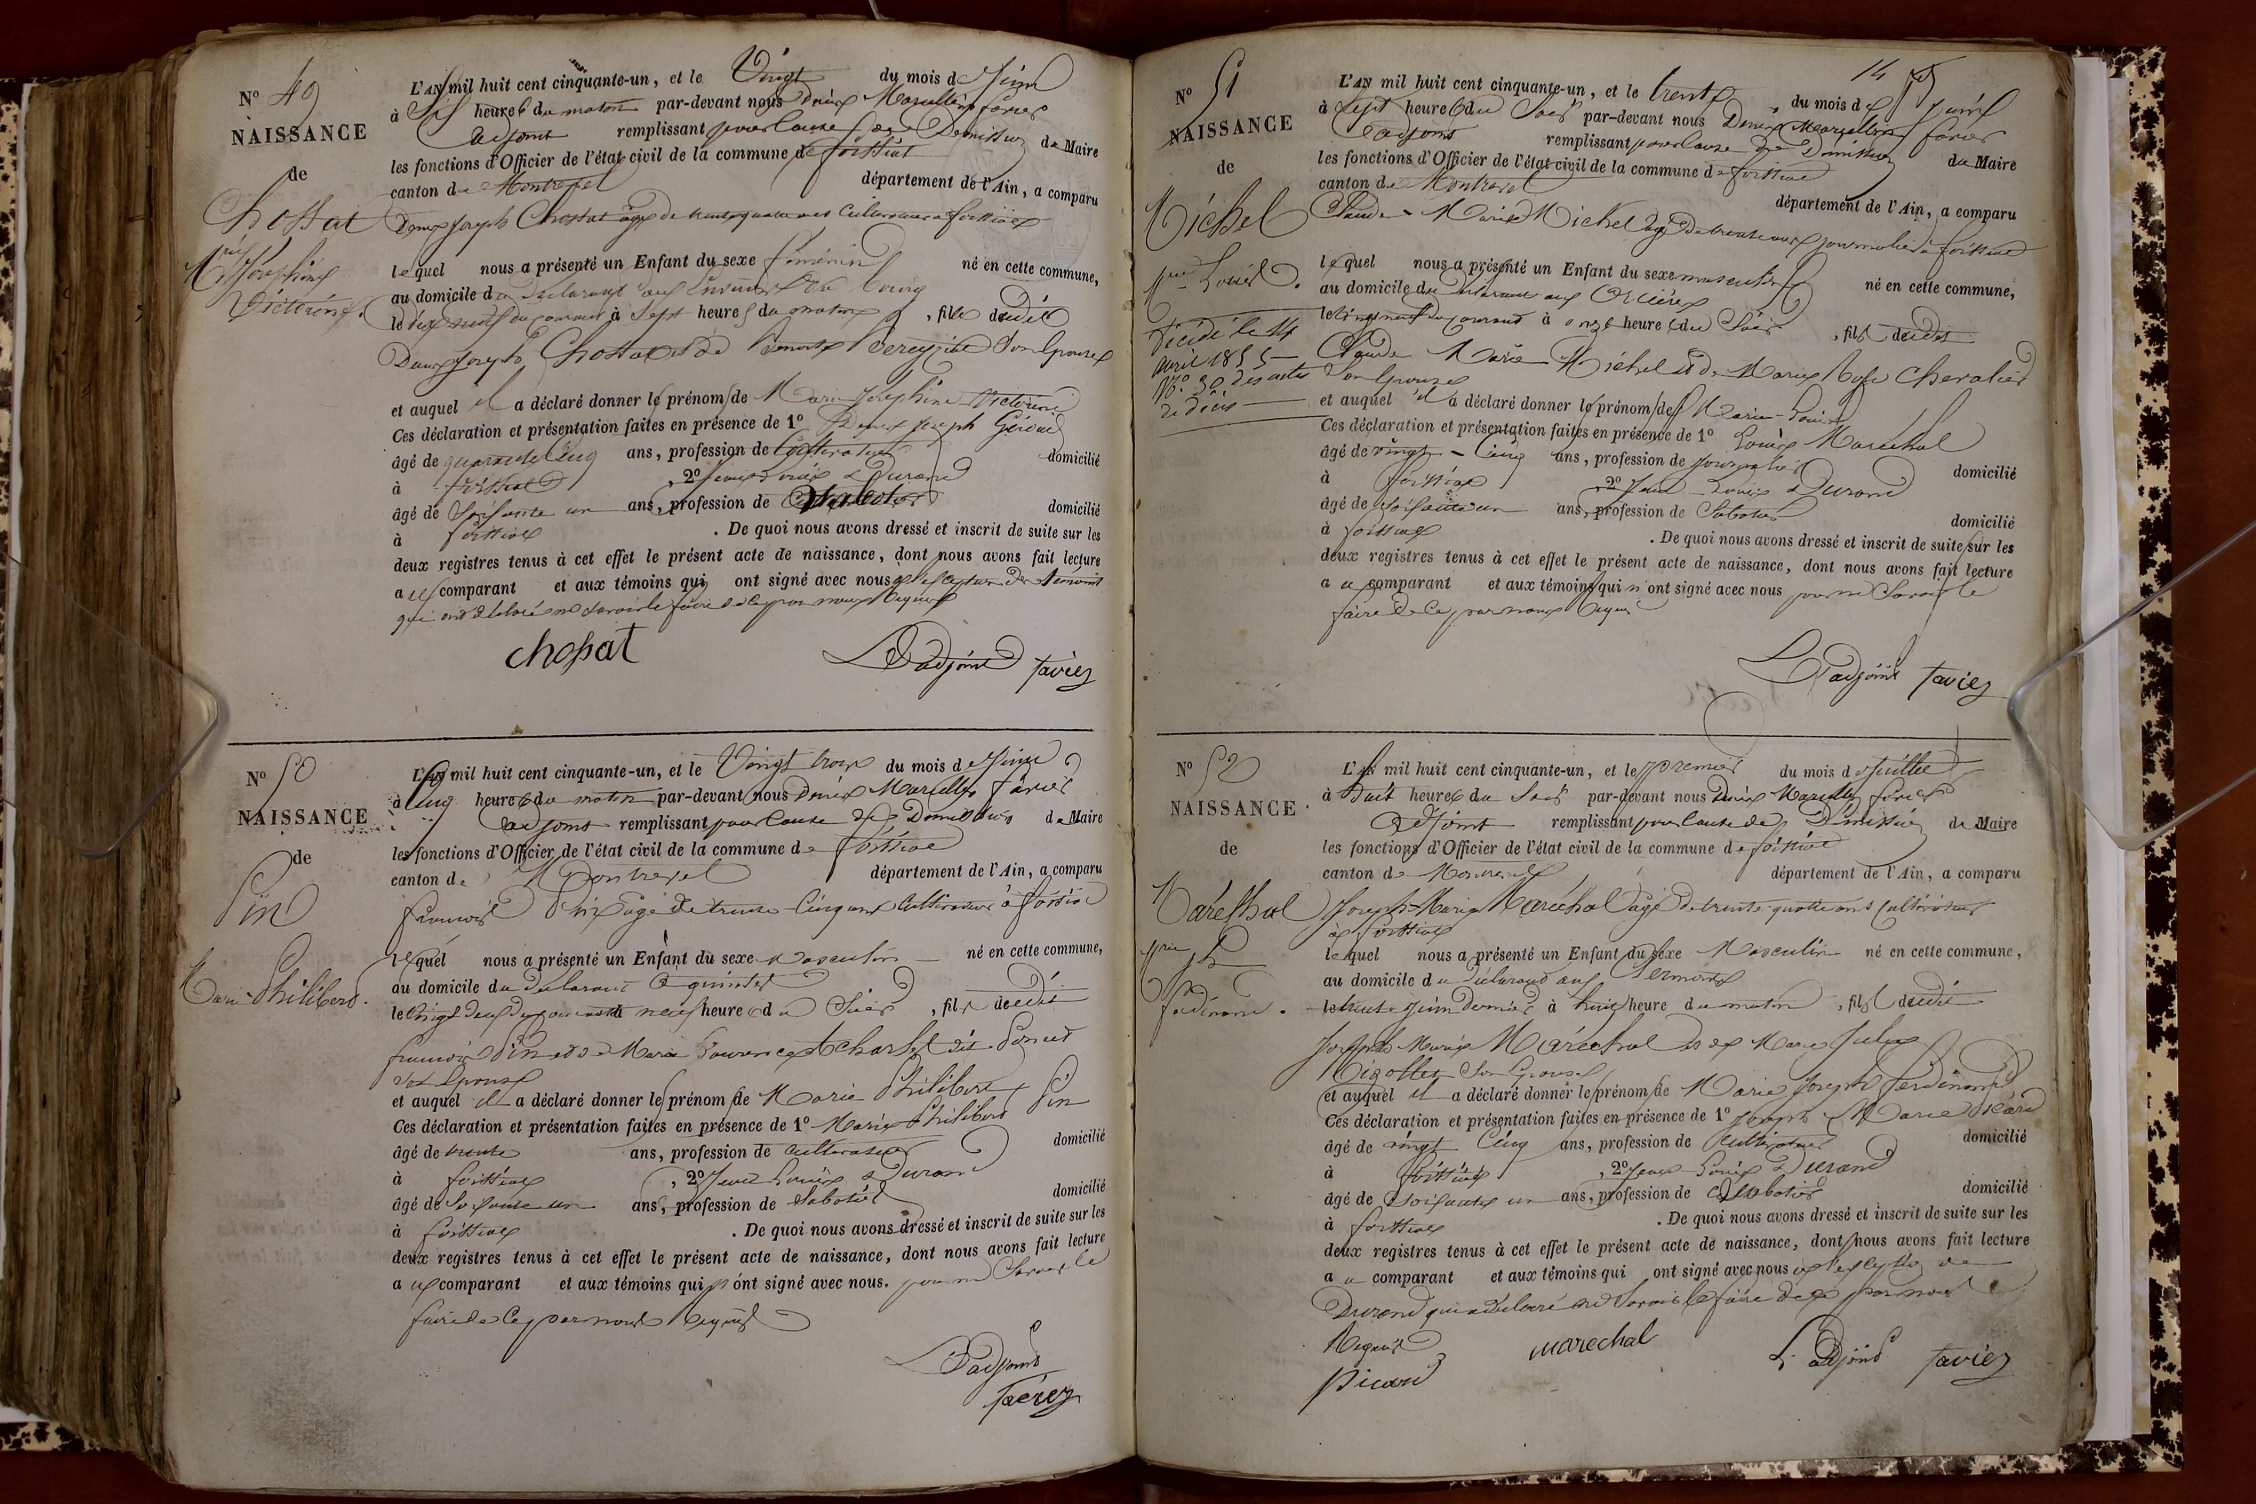 N° 49
NAISSANCE
de
Chossat
Mie Joséphine
Victorine.
L'AN mil huit cent cinquante-un, et le Vingt du mois de Juin
à Six heures du matin par-devant nous Denis Marcellin favier
adjoint remplissant pour cause de Démission du Maire
les fonctions d'Officier de l'état civil de la commune de foissiat
canton de Montrevel département de l'Ain, a comparu
Denis Joseph Chossat âgé de trente quatre ans Cultivateur à foissiat
lequel nous a présenté un Enfant du sexe féminin né en cette commune,
au domicile du Déclarant du bourg
le dix neuf du courant à Sept heures du matin, fille dudit
Denis Joseph Chossat et de son épouse
et auquel il a déclaré donner les prénoms de Marie Joséphine Victorine
Ces déclaration et présentation faites en présence de 1° Denis Joseph
âgé de quarante cinq ans, profession de Cultivateur domicilié
à foissiat, 2° Jean Louis Durand
âgé de Soixante un ans, profession de Sabotier domicilié
à foissiat. De quoi nous avons dressé et inscrit de suite sur les
deux registres tenus à cet effet le présent acte de naissance, dont nous avons fait lecture
aux comparant et aux témoins qui ont signé avec nous à l'exception des témoins
qui ont déclaré ne savoir le faire de ce par nous requis
chossat L'adjoint favier
N° 50
NAISSANCE
de
Pin
Marie Philibert.
L'AN mil huit cent cinquante-un, et le Vingt trois du mois de Juin
à Cinq heures du matin par-devant nous Denis Marcellin favier
adjoint remplissant pour cause de Démission du Maire
les fonctions d'Officier de l'état civil de la commune de foissiat
canton de Montrevel département de l'Ain, a comparu
françois Pin âgé de trente cinq ans Cultivateur à foissiat
lequel nous a présenté un Enfant du sexe masculin né en cette commune,
au domicile du déclarant
le vingt deux du courant à neuf heures du Soir, fils dudit
françois Pin et de Marie Laurence dit
son épouse
et auquel il a déclaré donner les prénoms de Marie Philibert
Ces déclaration et présentation faites en présence de 1° Marie Philibert Pin
âgé de trente ans, profession de cultivateur domicilié
à foissiat, 2° Jean Louis Durand
âgé de Soixante un ans, profession de Sabotier domicilié
à foissiat. De quoi nous avons dressé et inscrit de suite sur les
deux registres tenus à cet effet le présent acte de naissance, dont nous avons fait lecture
aux comparant et aux témoins qui n'ont signé avec nous. pour ne Savoir le
faire de ce par nous requis
L'adjoint
favier
14
N° 51
NAISSANCE
de
Michel
Mie Louis.
Décédé le 14
avril 1855
N° 30 des actes
de décès
L'AN mil huit cent cinquante-un, et le trente du mois de Juin
à Sept heures du Soir par-devant nous Denis Marcellin favier
adjoint remplissant pour cause de Démission du Maire
les fonctions d'Officier de l'état civil de la commune de foissiat
canton de Montrevel département de l'Ain, a comparu
Claude Marie Michel âgé de trente ans journalier à foissiat
lequel nous a présenté un Enfant du sexe masculin né en cette commune,
au domicile du déclarant aux
le vingt neuf du courant à onze heures du Soir, fils dudit
Claude Marie Michel et de Marie Rose Chevalier
Son épouse
et auquel il a déclaré donner les prénoms de Marie-Louis
Ces déclaration et présentation faites en présence de 1° Louis Maréchal
âgé de vingt-Cinq ans, profession de journalier domicilié
à foissiat, 2° Jean Louis Durand
âgé de soixante un ans, profession de Sabotier domicilié
à foissiat. De quoi nous avons dressé et inscrit de suite sur les
deux registres tenus à cet effet le présent acte de naissance, dont nous avons fait lecture
au comparant et aux témoins qui n'ont signé avec nous pour ne Savoir le
faire de ce par nous requis
L'adjoint favier
N° 52
NAISSANCE
de
Maréchal
Mrie Jh
ferdinand.
L'AN mil huit cent cinquante-un, et le premier du mois de Juillet
à huit heures du Soir par-devant nous Denis Marcellin favier
adjoint remplissant pour cause de Démission du Maire
les fonctions d'Officier de l'état civil de la commune de foissiat
canton de Montrevel département de l'Ain, a comparu
Joseph-Marie Maréchal âgé de trente-quatre ans Cultivateur
à foissiat
lequel nous a présenté un Enfant du sexe Masculin né en cette commune,
au domicile du déclarant aux
le trente Juin dernier à huit heures du matin, fils dudit
Joseph Marie Maréchal et de Marie Julie
Son épouse
et auquel il a déclaré donner les prénoms de Marie Joseph ferdinand
Ces déclaration et présentation faites en présence de 1° Joseph Marie Picard
âgé de vingt Cinq ans, profession de Cultivateur domicilié
à foissiat, 2° Jean Louis Durand
âgé de Soixante un ans, profession de Sabotier domicilié
à foissiat. De quoi nous avons dressé et inscrit de suite sur les
deux registres tenus à cet effet le présent acte de naissance, dont nous avons fait lecture
au comparant et aux témoins qui ont signé avec nous à l'exception de
Durand qui a déclaré ne Savoir le faire de ce par nous
Requis
Picard marechal L'adjoint favier